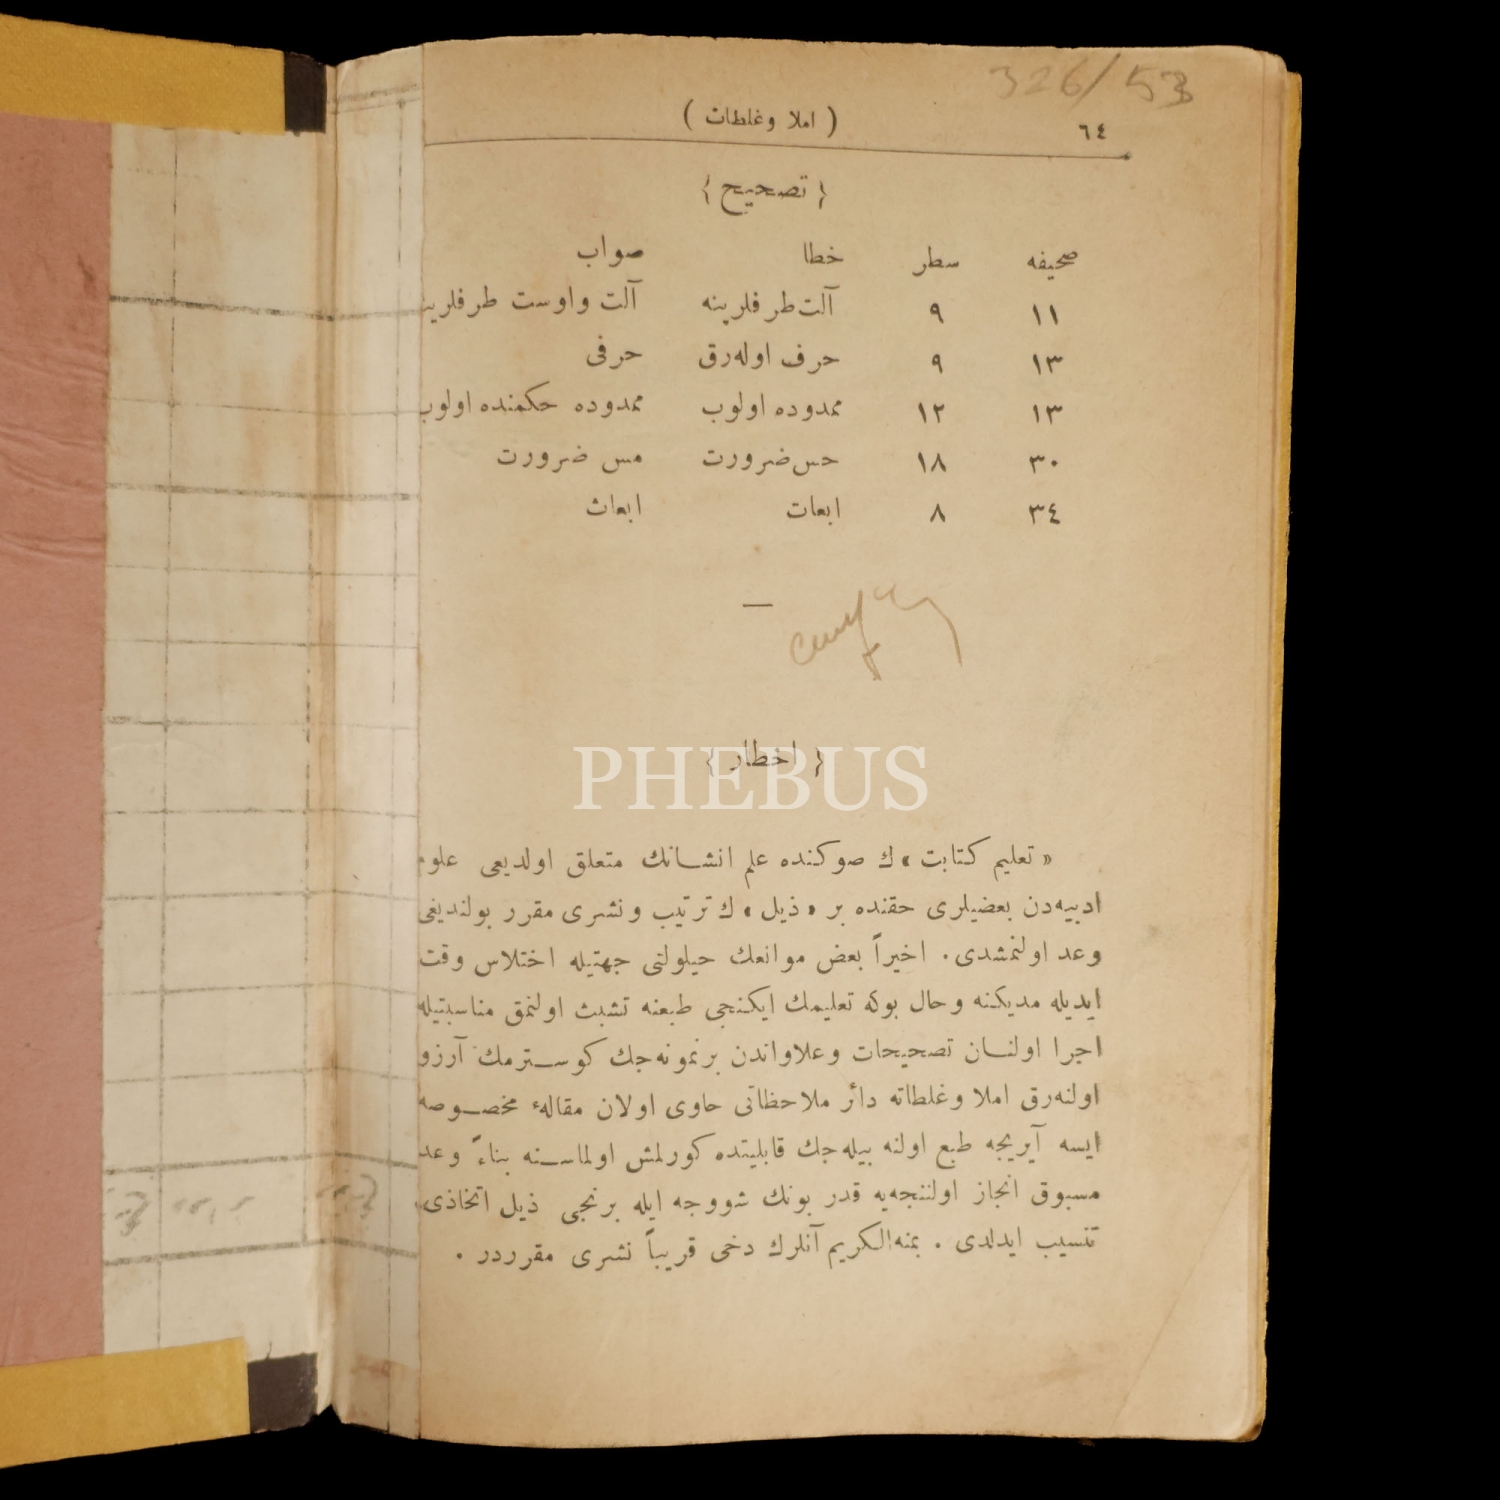 326/53
٦٤
( املا وغلطات )
{ تصحيح }
صحيفه سطر خطا صواب
١١ ٩ آلت طرفلرينه آلت واوست طرفلرينه
١٣ ٩ حرف اوله‌رق حرفى
١٣ ١٢ ممدوده اولوب ممدوده حكمنده اولوب
٣٠ ١٨ حس ضرورت مس ضرورت
٣٤ ٨ ابعات ابعاث
{ اخطار }
PHEBUS
« تعليم كتابت » ك صوكنده علم انشانك متعلق اولديغى علوم
ادبيه‌دن بعضيلرى حقنده بر « ذيل » ك ترتيب ونشرى مقرر بولنديغى
وعد اولنمشدى . اخيراً بعض موانعك حيلولتى جهتيله اختلاس وقت
ايديله مديكنه وحال بوكه تعليمك ايكنجى طبعنه تشبث اولنمق مناسبتيله
اجرا اولنان تصحيحات وعلاواتدن بر نمونه‌جك كوسترمك آرزو
اولنه‌رق املا وغلطاته دائر ملاحظاتى حاوى اولان مقالهٔ مخصوصه
ايسه آيريجه طبع اولنه بيله‌جك قابليتده كورلمش اولماسنه بناءً وعد
مسبوق انجاز اولننجه‌يه قدر بونك شووجه ايله برنجى ذيل اتخاذى
تنسيب ايدلدى . بمنه الكريم آنلرك دخى قريباً نشرى مقرردر .